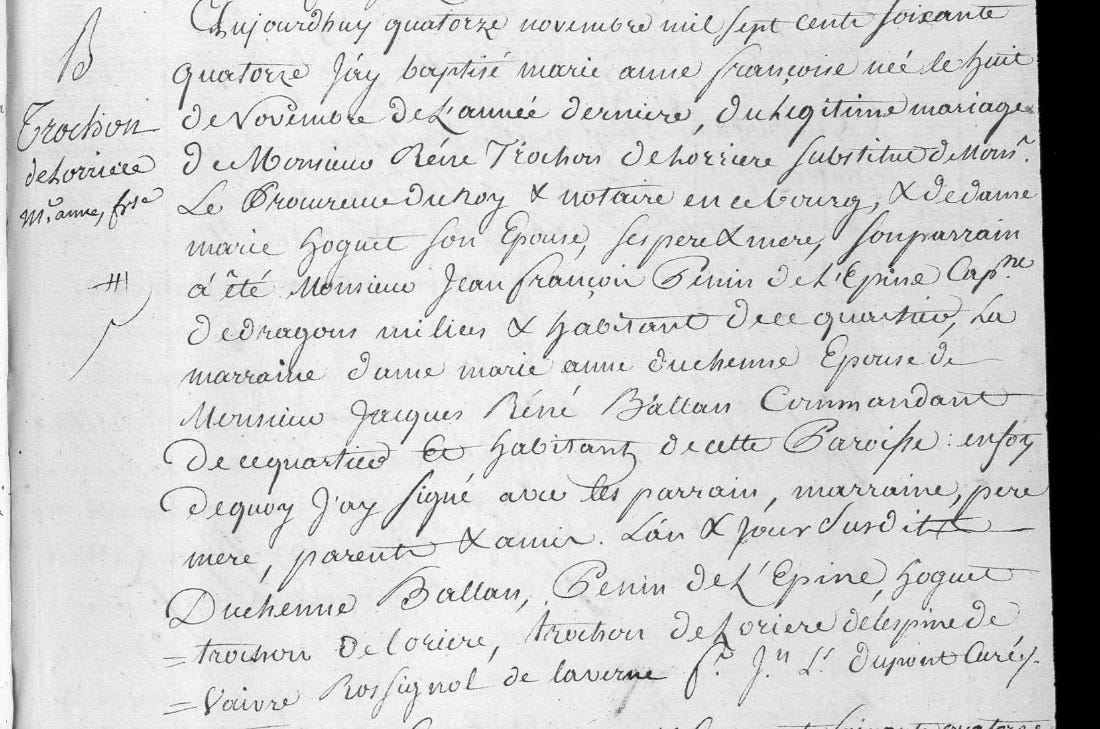 B
Trochon
delorriere
Mie. anne, fse
Aujourdhuy quatorze novembre mil sept cents soixante
quatorze J'ay baptisé marie anne françoise née le huit
de Novembre de L'année derniere, du Legitime mariage
de Monsieur Réné Trochon delorriere substitut de Monsr.
Le Procureur du Roy & notaire en ce bourg, & de dame
marie hoguet son Epouse, ses pere & mere, son parrain
á été Monsieur Jean françois Penin de L'Epine Capne
de dragons milices & habitant de ce quartier, La
marraine dame marie anne duchenne Epouse de
Monsieur Jacques Réné Ballan Commandant
De ce quartier Et habitant de cette Paroisse : en foy
de quoy J'ay signé avec les parrain, marraine, pere
mere, parents & amis. L'án & Jour Susdits
Duchenne Ballan, Penin de L'Epine, hoguet
= trochon de loriere, trochon de Loriere delespine de
= Vaivre Rossignol de laverne fr. Jn Ls. dupont Curé
soixante quatorze